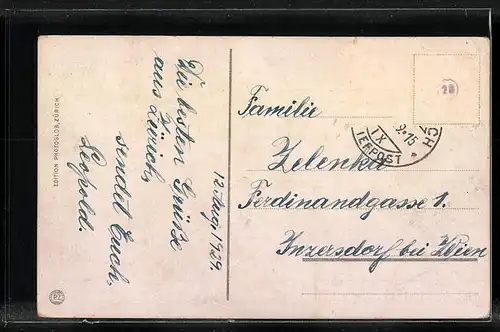 Die besten Grüße
aus Zürich,
sendet Euch,
Leopold.
12. Aug. 1929.
Familie
Zelenka
Ferdinandgasse 1.
Inzersdorf bei Wien
EDITION PHOTOGLOB, ZÜRICH
PZ
28
IX